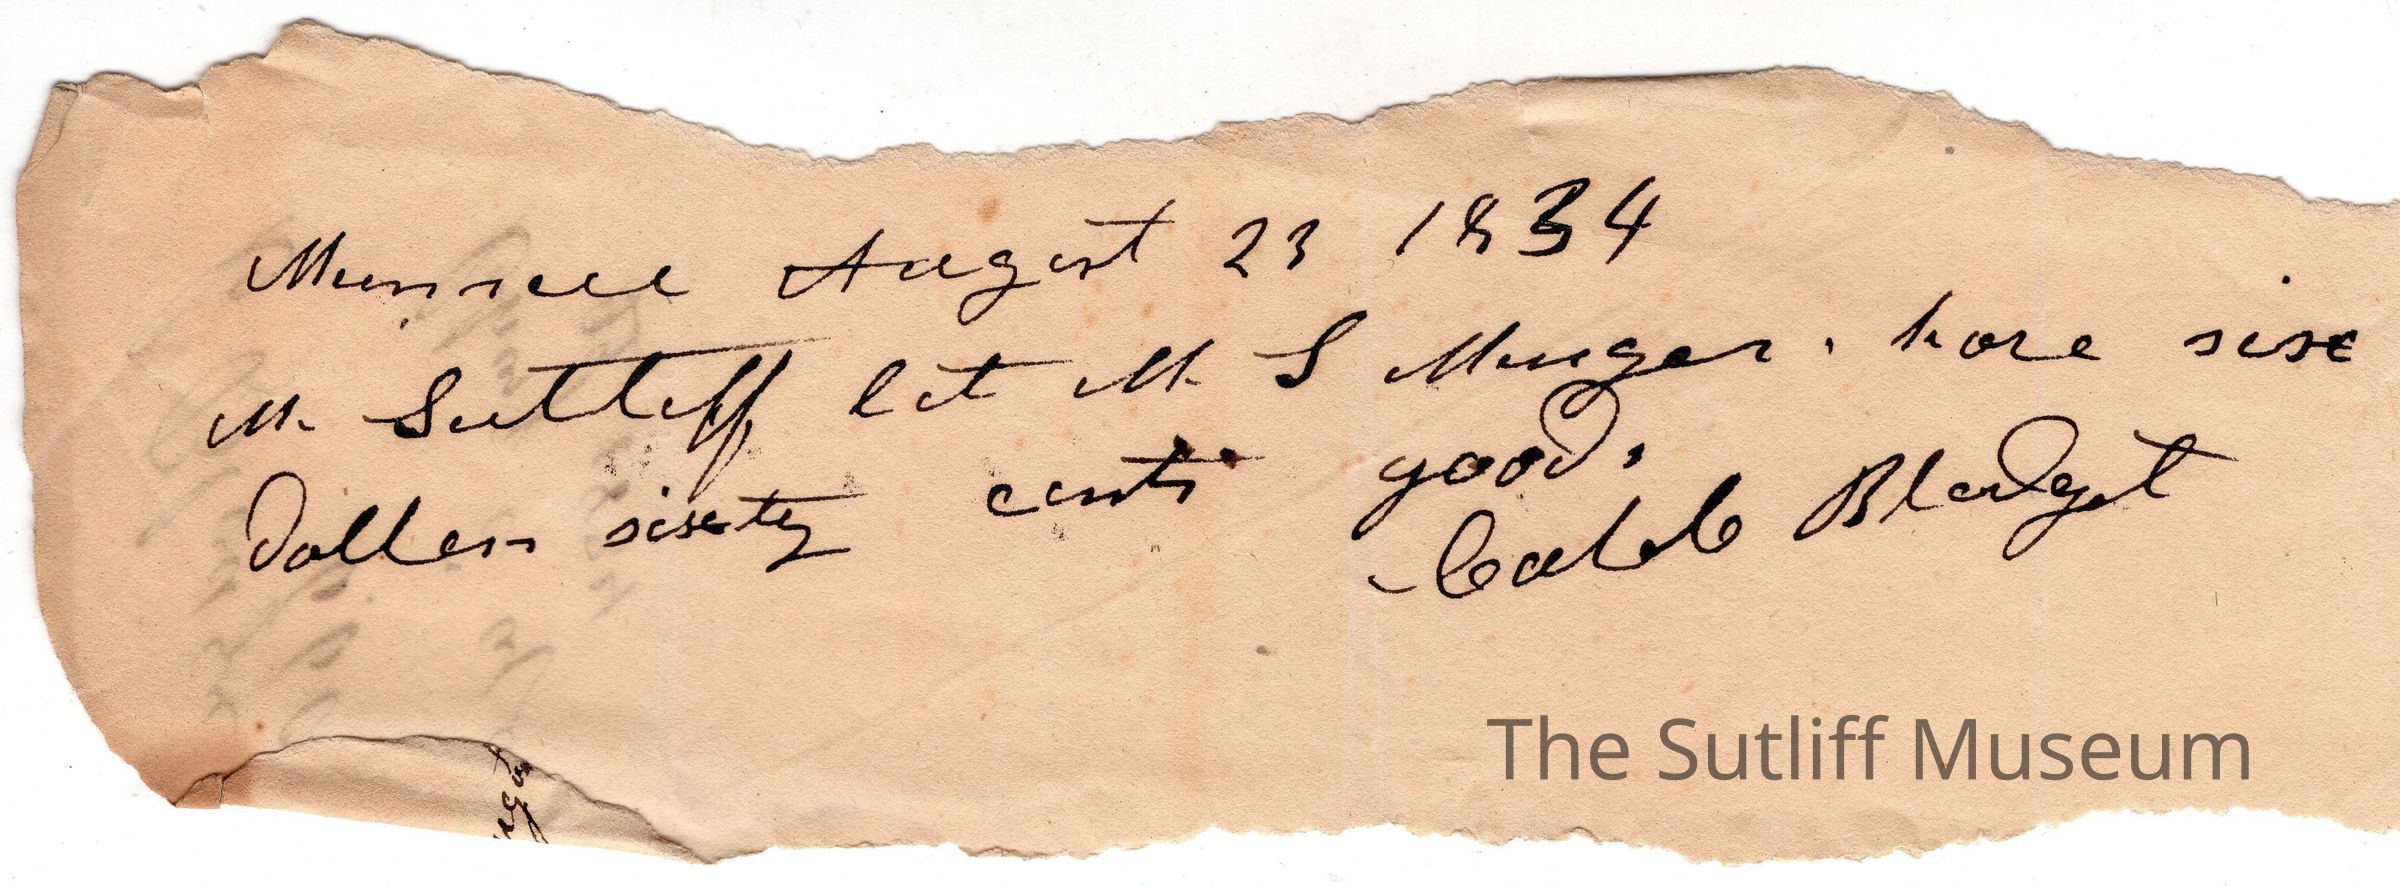 August 23 1834
M. Sutliff let M. S Munger. have sixe
Dollers sixety cents good.
Caleb Blodget
The Sutliff Museum